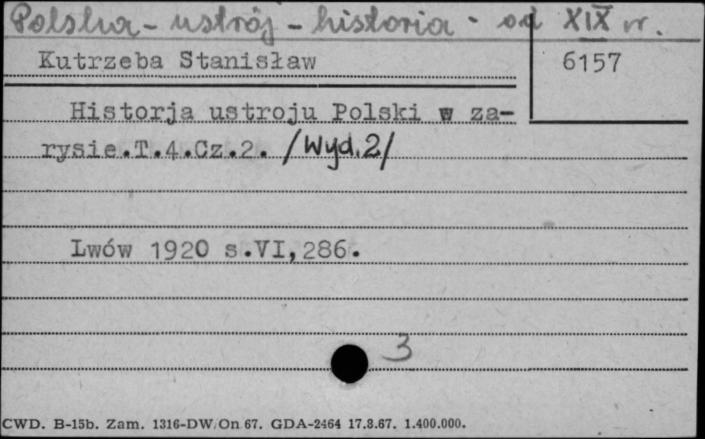 Polska - ustrój - historia - od XIX w.
Kutrzeba Stanisław
6157
Historja ustroju Polski w za-
rysie.T.4.Cz.2. /Wyd.2/
Lwów 1920 s.VI,286.
3
CWD. B-15b. Zam. 1316-DW/On 67. GDA-2464 17.8.67. 1.400.000.